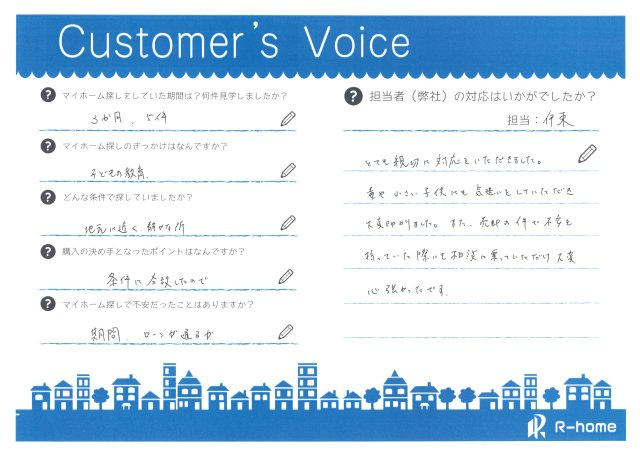 Customer's Voice
? マイホーム探しをしていた期間は？何件見学しましたか？
3か月、5件
? マイホーム探しのきっかけはなんですか？
子どもの教育
? どんな条件で探していましたか？
地元に近く、静かな所
? 購入の決め手となったポイントはなんですか？
条件に合致したので
? マイホーム探しで不安だったことはありますか？
期間、ローンが通るか
? 担当者（弊社）の対応はいかがでしたか？
担当：伊東
とても親切に対応をいただきました。
妻や小さい子供にも気遣いをしていただき
大変助かりました。また、売却の件で不安を
持っていた際にも相談に乗っていただけ大変
心強かったです。
R-home